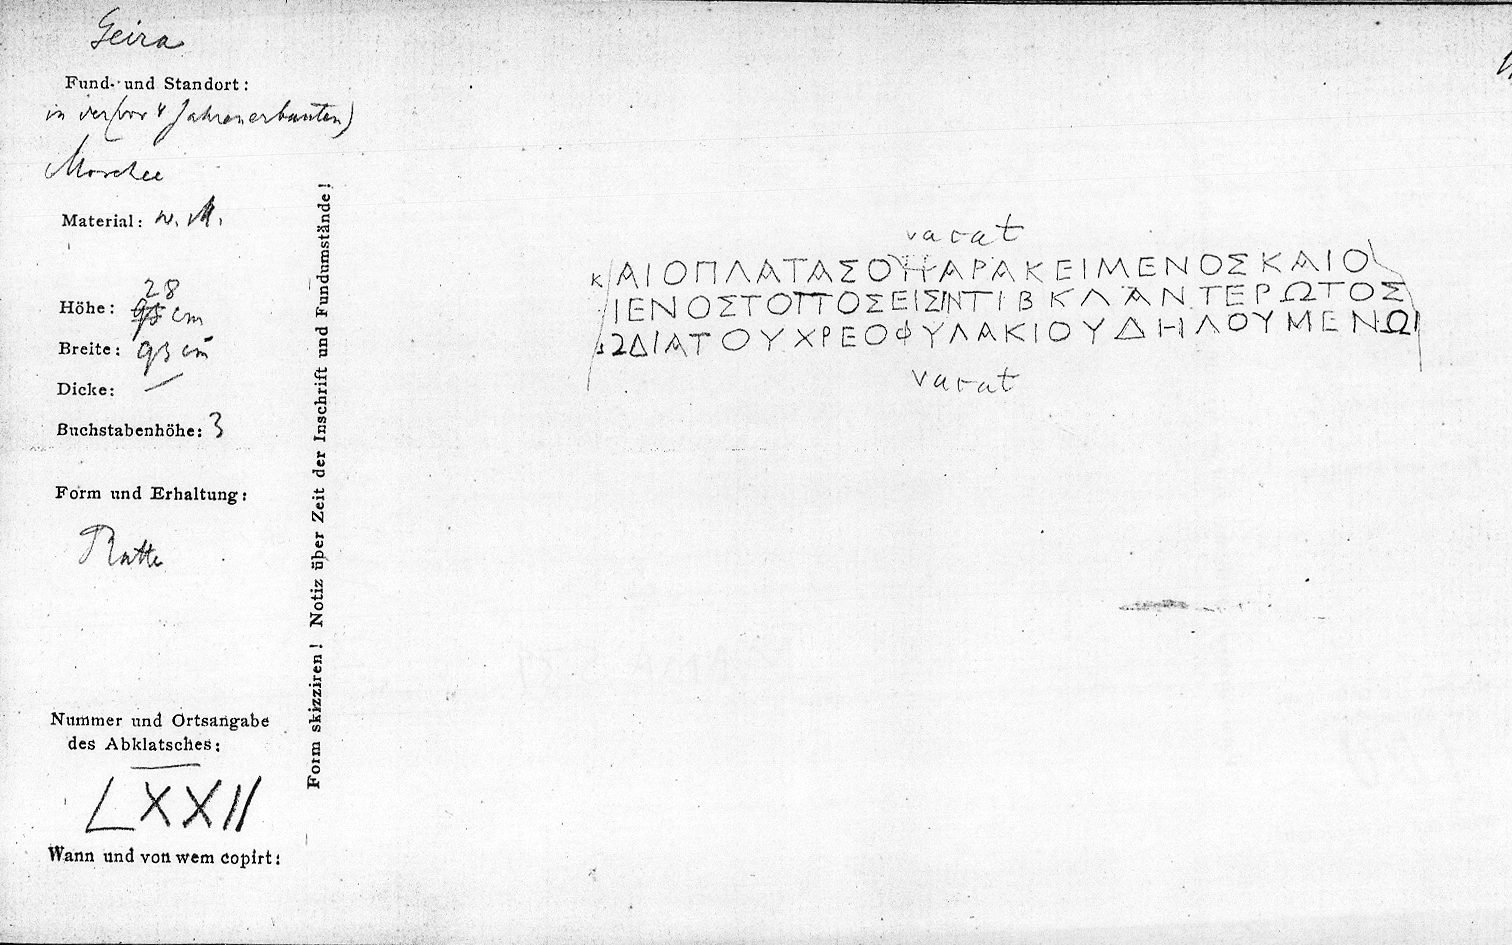 Geira
Fund- und Standort:
in der (vor 4 Jahren erbauten)
Moschee
Material: w. M.
Höhe: 28 cm
Breite: 93 cm
Dicke: —
Buchstabenhöhe: 3
Form und Erhaltung:
Platte
Nummer und Ortsangabe
des Abklatsches:
LXXII
Wann und von wem copirt:
Form skizziren! Notiz über Zeit der Inschrift und Fundumstände!
vacat
ΚΑΙΟΠΛΑΤΑΣΟΥΠΑΡΑΚΕΙΜΕΝΟΣΚΑΙΟ
ΙΕΝΟΣΤΟΠΟΣΕΙΣΙΝΤΙΒΚΛΑΝΤΕΡΩΤΟΣ
ΩΔΙΑΤΟΥΧΡΕΟΦΥΛΑΚΙΟΥΔΗΛΟΥΜΕΝΩΙ
vacat